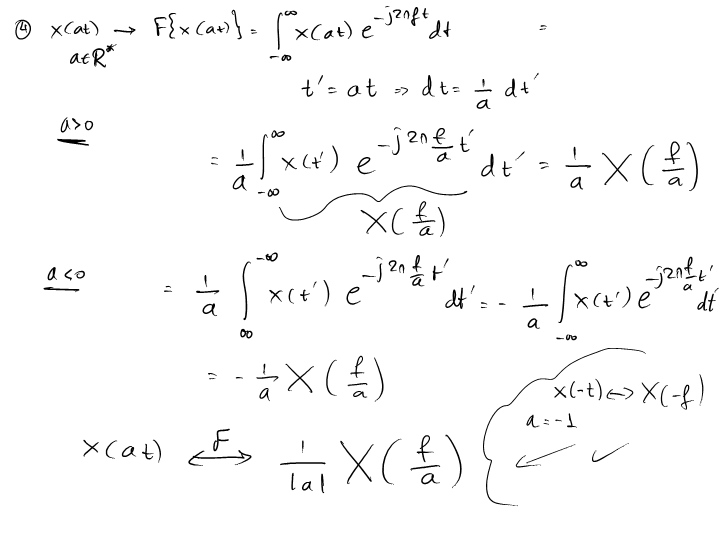 ④ x(at) → F{x(at)} = ∫_{-∞}^{∞} x(at) e^{-j2πft} dt =
a∈R*
t' = at ⇒ dt = 1/a dt'
a>0
= 1/a ∫_{-∞}^{∞} x(t') e^{-j2π f/a t'} dt' = 1/a X(f/a)
X(f/a)
a<0 = 1/a ∫_{∞}^{-∞} x(t') e^{-j2π f/a t'} dt' = - 1/a ∫_{-∞}^{∞} x(t') e^{-j2π f/a t'} dt'
= - 1/a X(f/a)
x(-t) ↔ X(-f)
a = -1
x(at) ⟷^{F} 1/|a| X(f/a)